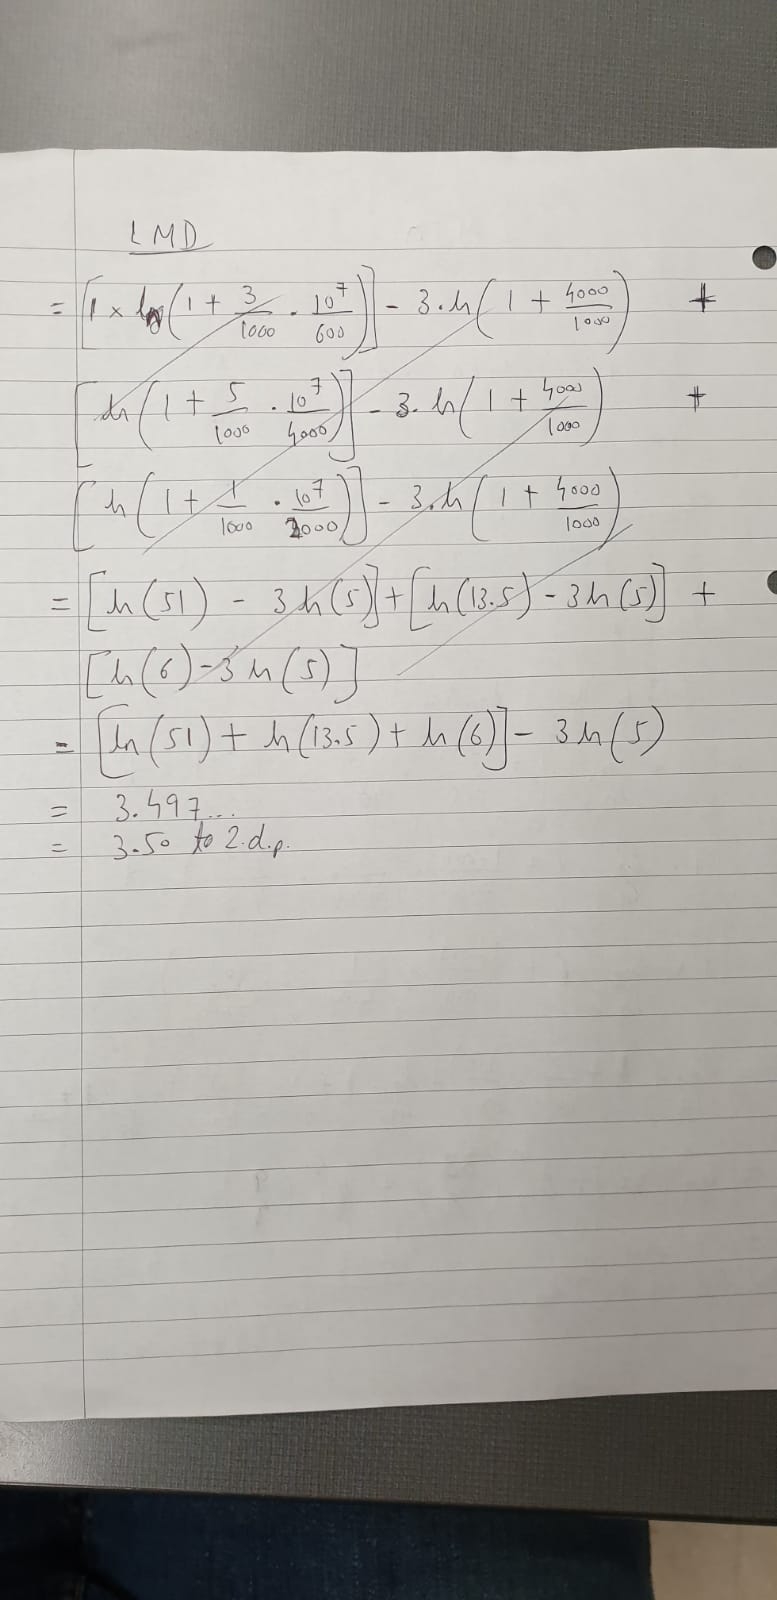 LMD
= [1 × log(1 + 3/1000 · 10^7/600)] - 3·ln(1 + 4000/1000) +
[ln(1 + 5/1000 · 10^7/4000)] - 3·ln(1 + 4000/1000) +
[ln(1 + 1/1000 · 10^7/2000)] - 3·ln(1 + 4000/1000)
= [ln(51) - 3ln(5)] + [ln(13.5) - 3ln(5)] +
[ln(6) - 3ln(5)]
= [ln(51) + ln(13.5) + ln(6)] - 3ln(5)
= 3.497...
= 3.50 to 2.d.p.